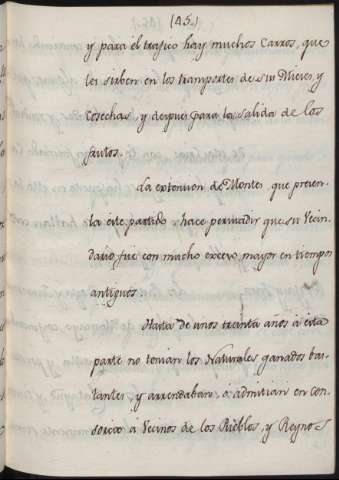 (45.)
y para el trafico hay muchos Carros, que
les sirben en los transportes de sus Mieses, y
Cosechas, y despues para la salida de los
frutos.
La extension de Montes, que presen-
ta este partido, hace persuadir que su Vecin-
dario fue con mucho excevo mayor en tiempos
antiguos.
Hasta de unos treinta años à esta
parte no tenian los Naturales ganados bas-
tantes, y arrendaban, ò admitian en con-
sorcio à Vecinos de los Pueblos, y Reynos